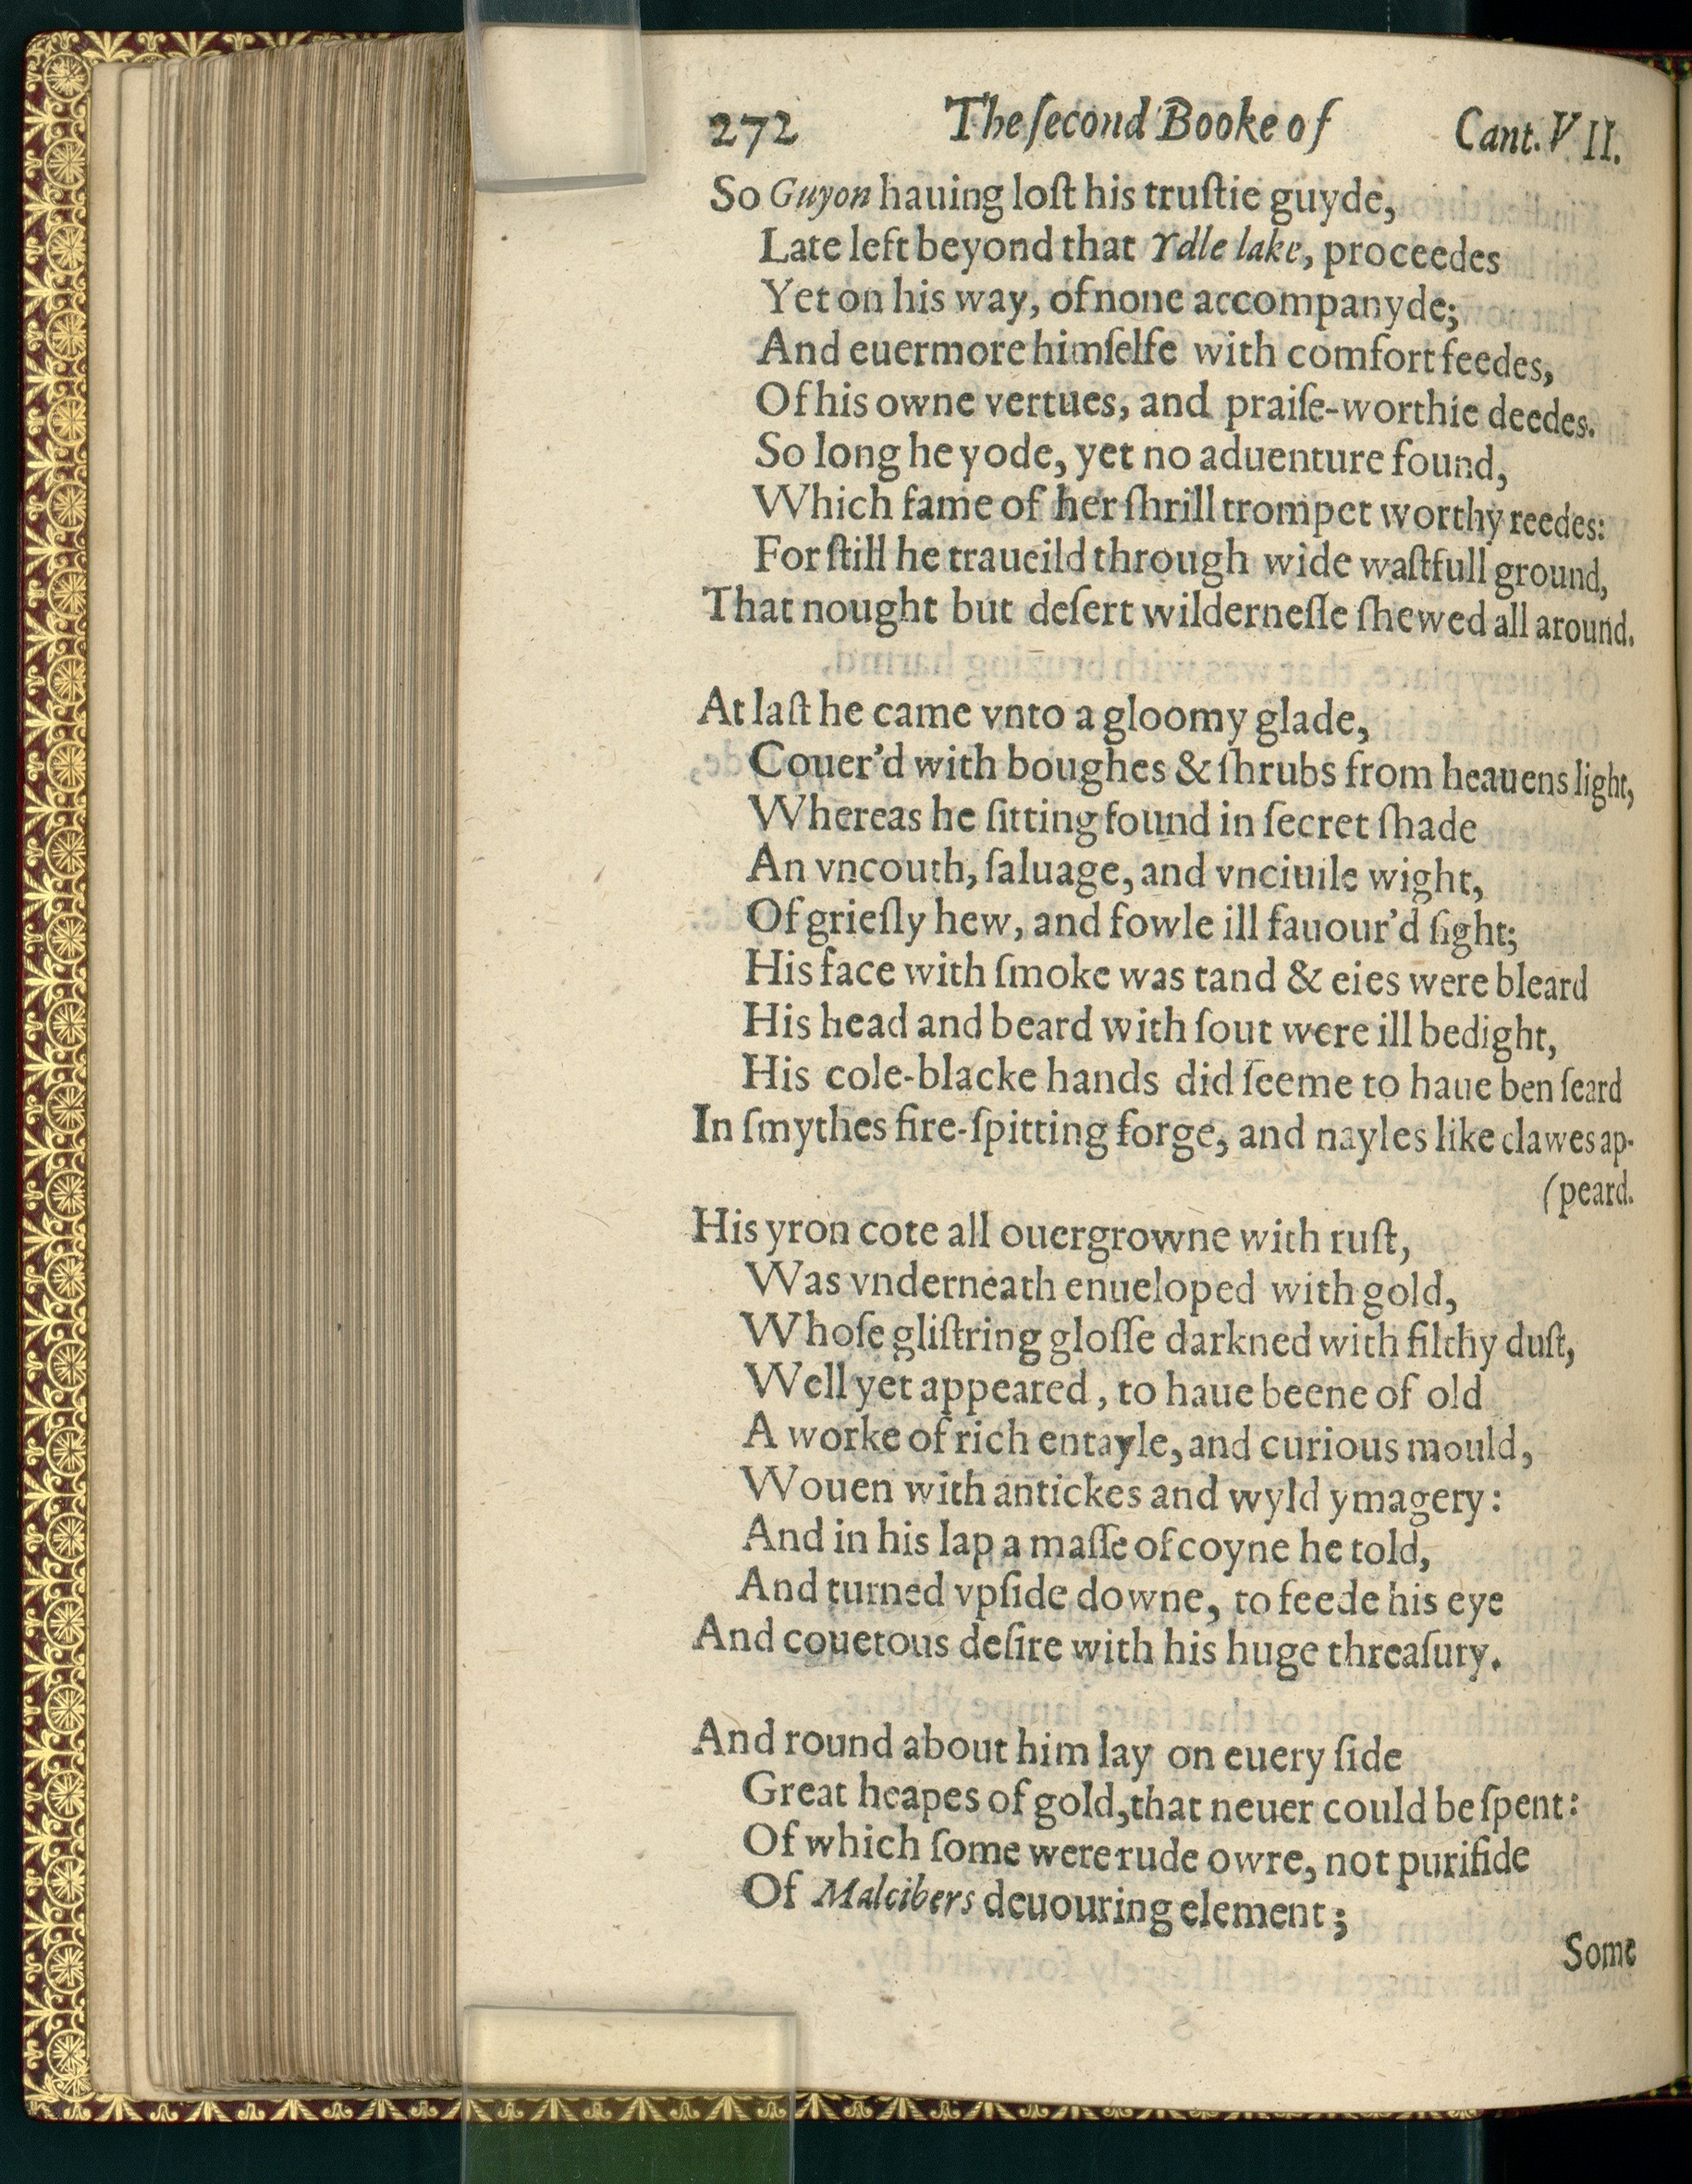 272 The ſecond Booke of Cant. VII.
So Guyon hauing loſt his truſtie guyde,
Late left beyond that Ydle lake, proceedes
Yet on his way, of none accompanyde;
And euermore himſelfe with comfort feedes,
Of his owne vertues, and praiſe-worthie deedes.
So long he yode, yet no aduenture found,
Which fame of her ſhrill trompet worthy reedes:
For ſtill he traueild through wide waſtfull ground,
That nought but deſert wilderneſſe ſhewed all around.
At laſt he came vnto a gloomy glade,
Couer'd with boughes & ſhrubs from heauens light,
Whereas he ſitting found in ſecret ſhade
An vncouth, ſaluage, and vnciuile wight,
Of grieſly hew, and fowle ill fauour'd ſight;
His face with ſmoke was tand & eies were bleard
His head and beard with ſout were ill bedight,
His cole-blacke hands did ſeeme to haue ben ſeard
In ſmythes fire-ſpitting forge, and nayles like clawes ap-
(peard.
His yron cote all ouergrowne with ruſt,
Was vnderneath enueloped with gold,
Whoſe gliſtring gloſſe darkned with filthy duſt,
Well yet appeared, to haue beene of old
A worke of rich entayle, and curious mould,
Wouen with antickes and wyld ymagery:
And in his lap a maſſe of coyne he told,
And turned vpſide downe, to feede his eye
And couetous deſire with his huge threaſury.
And round about him lay on euery ſide
Great heapes of gold, that neuer could be ſpent:
Of which ſome were rude owre, not purifide
Of Malcibers deuouring element;
Some